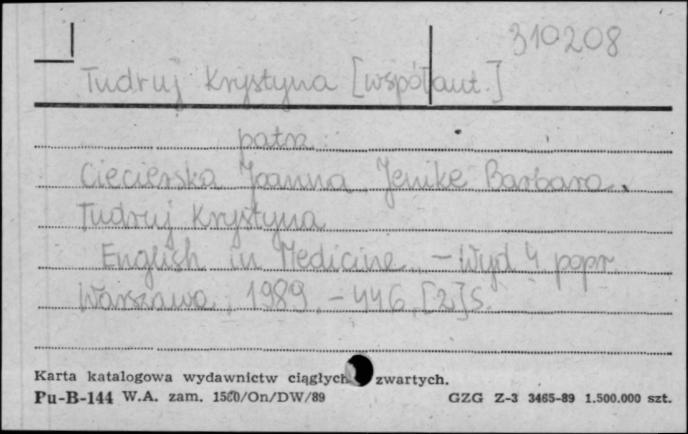 310208
Tudruj Krystyna [współaut.]
patrz
Ciecierska Joanna, Jenike Barbara,
Tudruj Krystyna
English in Medicine. - Wyd 4 popr.
Warszawa, 1989. - 446, [2] s.
Karta katalogowa wydawnictw ciągłych zwartych.
Pu-B-144 W.A. zam. 1560/On/DW/89 GZG Z-3 3465-89 1.500.000 szt.